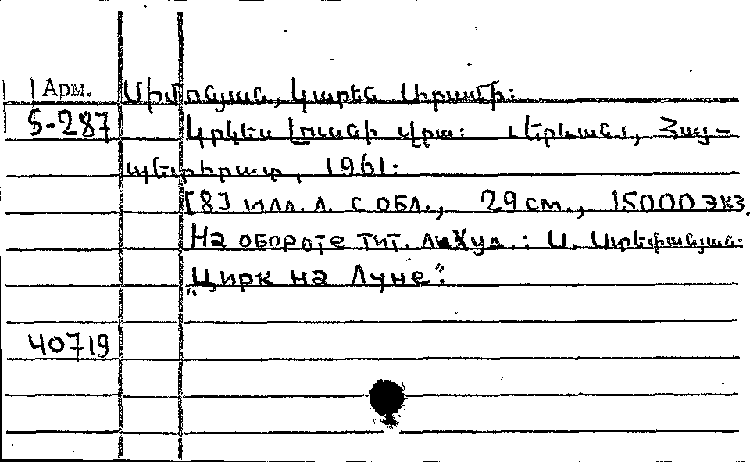 Арм. Սիմոնյան, Կարեն Արամի:
5-287 Կրկես Լուսնի վրա: Երևան, Հայ-
պետհրատ, 1961:
[8] илл. л. с обл., 29 см., 15000 экз.
На обороте тит. л. Худ.: Ա. Ստեփանյան:
"Цирк на Луне".
40719